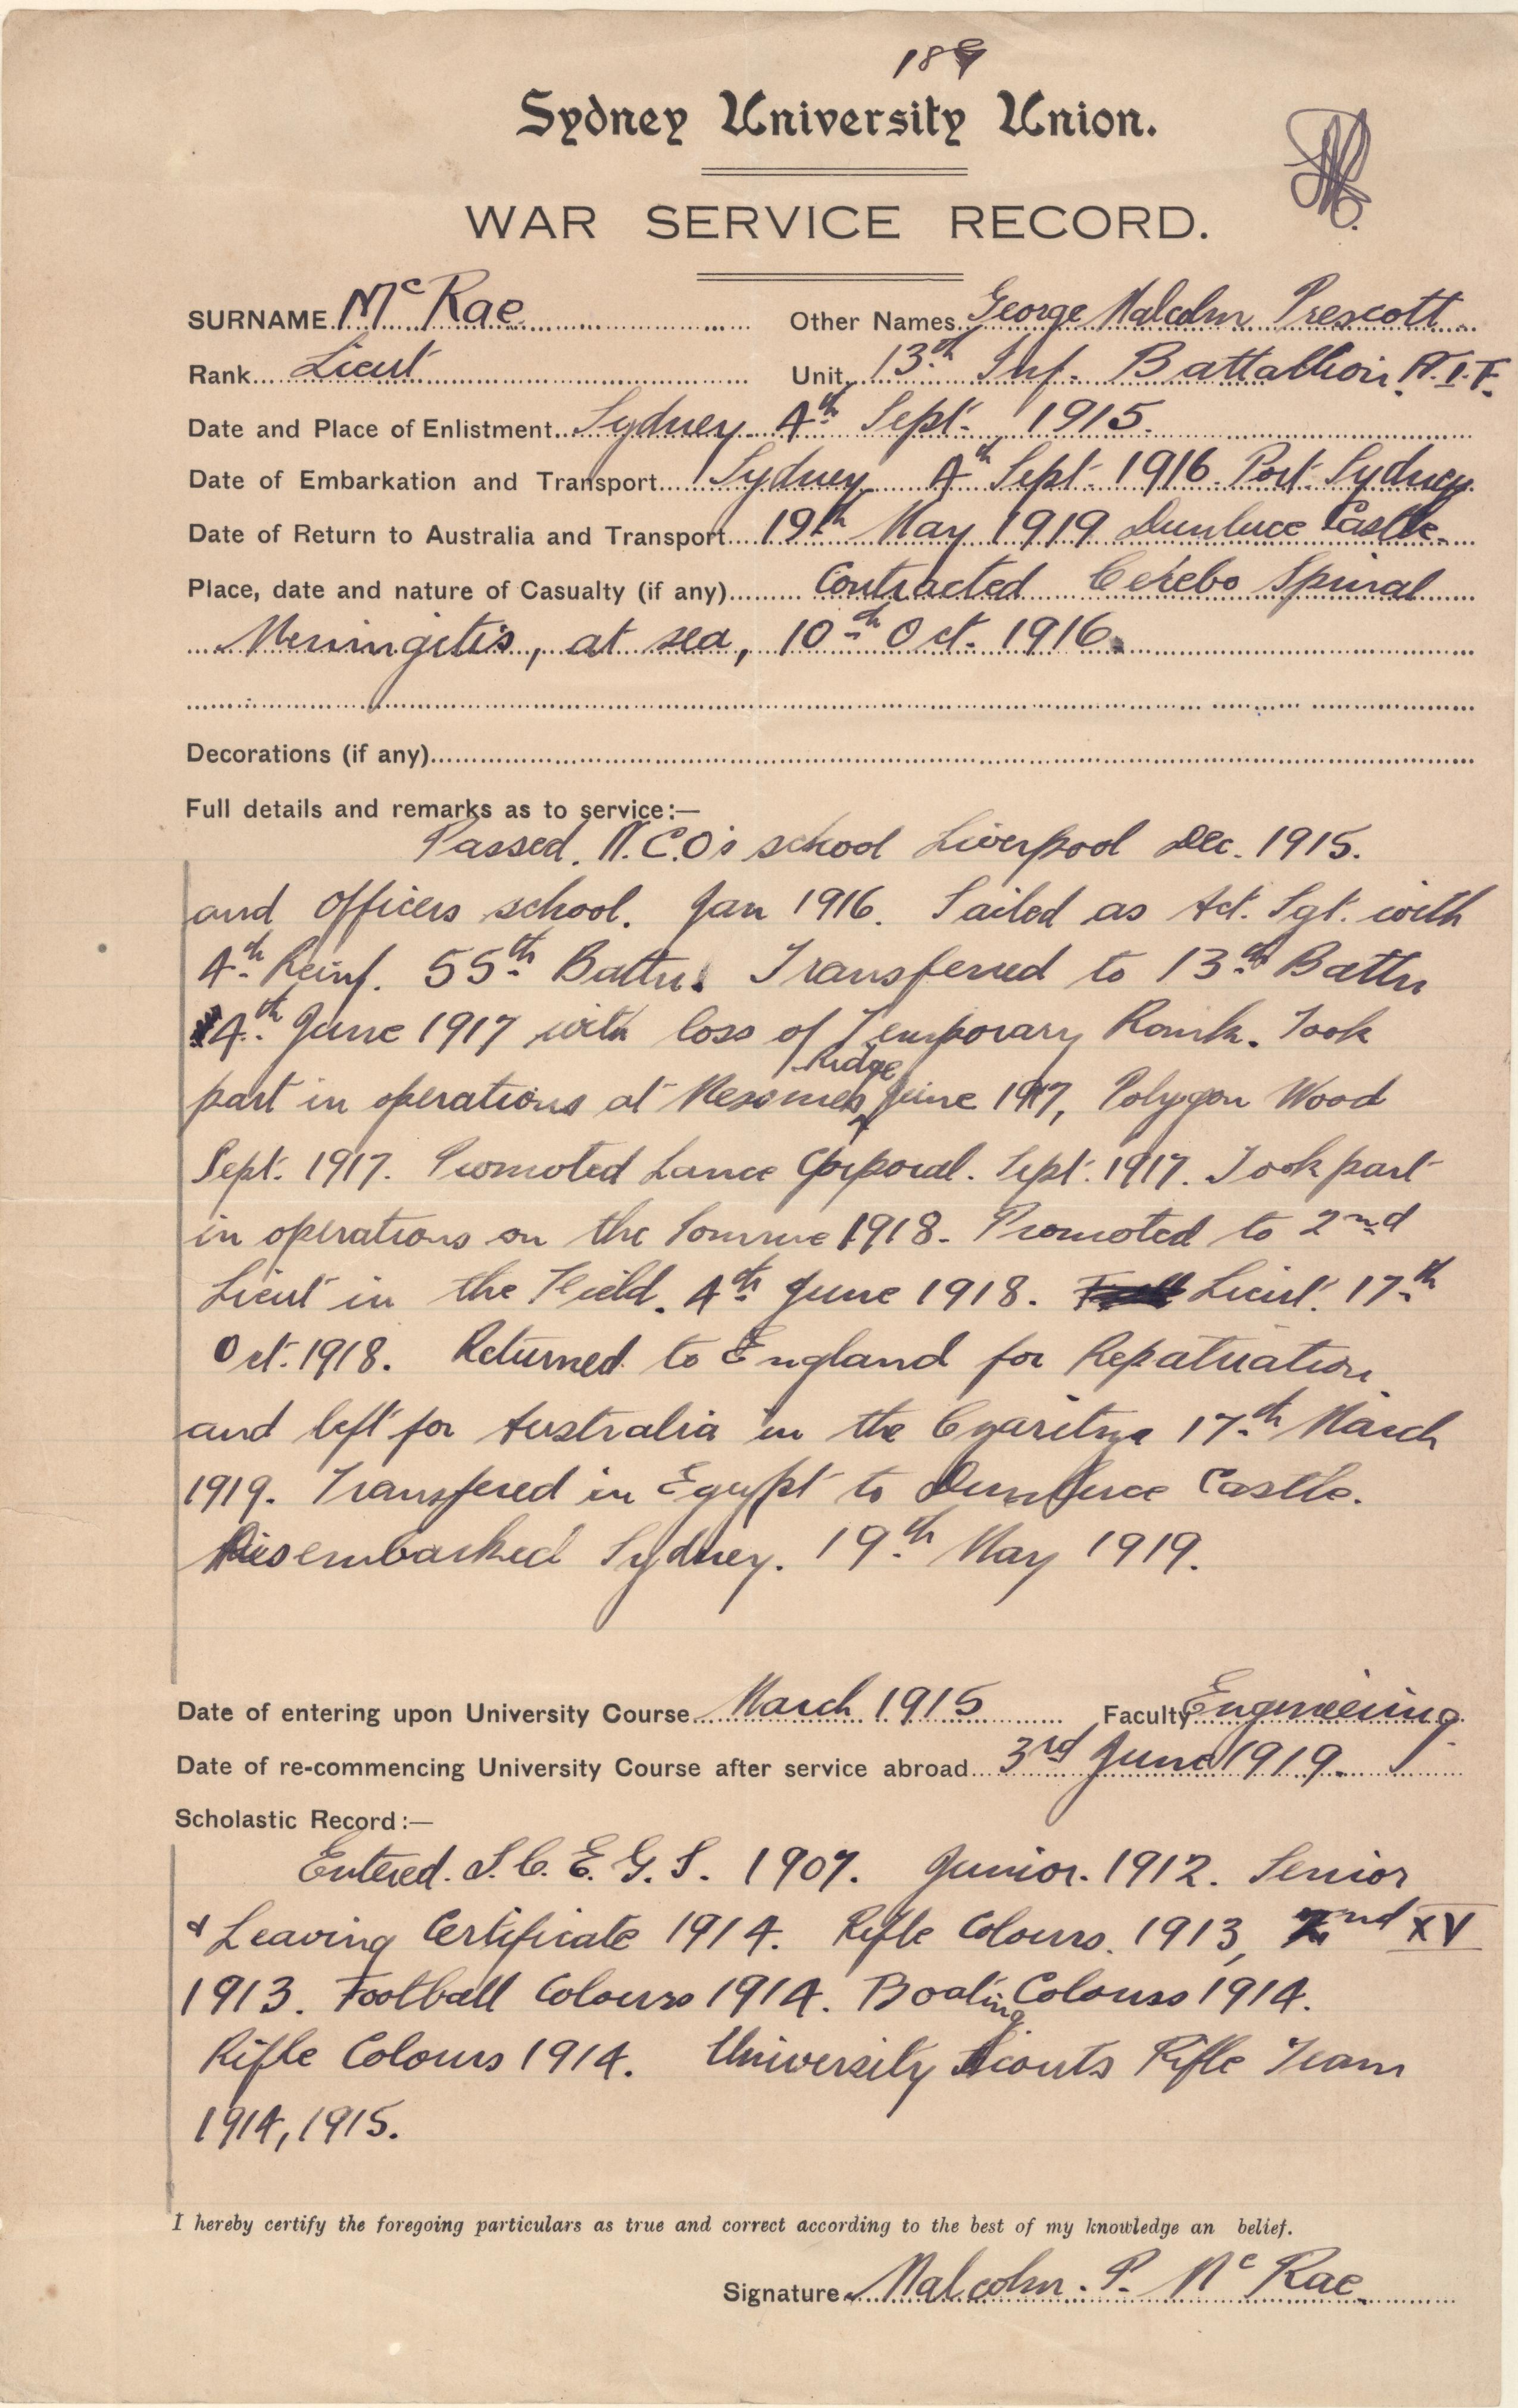 189
Sydney University Union.
WAR SERVICE RECORD.
SURNAME McRae Other Names George Malcolm Prescott
Rank Lieut Unit 13th Inf. Battallion A.I.F.
Date and Place of Enlistment Sydney 4th Sept. 1915.
Date of Embarkation and Transport Sydney 4th Sept. 1916. Port Sydney
Date of Return to Australia and Transport 19th May 1919 Dunluce Castle
Place, date and nature of Casualty (if any) Contracted Cerebo Spinal
Meningitis, at sea, 10th Oct. 1916.
Decorations (if any)
Full details and remarks as to service:—
Passed. N.C.O's school Liverpool Dec. 1915.
and Officers school. Jan 1916. Sailed as Act. Sgt. with
4th Reinf. 55th Battn. Transferred to 13th Battn
4th June 1917 with loss of Temporary Rank. Took
part in operations at Messines Ridge June 1917, Polygon Wood
Sept. 1917. Promoted Lance Corporal. Sept. 1917. Took part
in operations on the Somme 1918. Promoted to 2nd
Lieut in the Field. 4th June 1918. Lieut. 17th
Oct. 1918. Returned to England for Repatriation
and left for Australia in the Czaritza 17th March
1919. Transfered in Egypt to Dunluce Castle.
Disembarked Sydney. 19th May 1919.
Date of entering upon University Course March 1915 Faculty Engineering
Date of re-commencing University Course after service abroad 3rd June 1919
Scholastic Record:—
Entered. S.C.E.G.S. 1907. Junior. 1912. Senior
& Leaving Certificate 1914. Rifle Colours. 1913, 2nd XV
1913. Football Colours 1914. Boating Colours 1914.
Rifle Colours 1914. University Scouts Rifle Team
1914, 1915.
I hereby certify the foregoing particulars as true and correct according to the best of my knowledge an belief.
Signature Malcolm. P. McRae